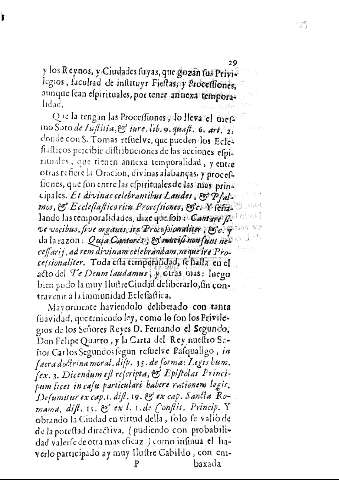 29
y los Reynos, y Ciudades suyas, que gozan sus Privi-
legios, facultad de instituyr Fiestas, y Processiones,
aunque sean espirituales, por tener annexa tempora-
lidad.
Que la tengan las Processiones, lo lleva el mes-
mo Soto de Iustitia, & iure. lib. 9. quæst. 6. art. 2:
donde con S. Tomas resuelve, que pueden los Ecle-
siasticos percibir distribuciones de las acciones espi-
rituales, que tienen annexa temporalidad, y entre
otras refiere la Oracion, divinas alabanças, y proces-
siones, que son entre las espirituales de las mas prin-
cipales. Et divinæ celebrantibus Laudes, & Psal-
mos, & Ecclesiasticarum Processiones, &c. Y seña-
lando las temporalidades, dize que son: Cantare si-
ve vocibus, sive organis, ire Processionaliter, &c. y
da la razon: Quia Cantores, & musici non sunt ne-
cessarij, ad rem divinam celebrandam, neque ire Pro-
cessionaliter. Toda esta temporalidad, se halla en el
acto del Te Deum laudamus, y otras mas: luego
bien pudo la muy Ilustre Ciudad deliberarlo, sin con-
travenir a la immunidad Eclesiastica.
Mayormente haviendolo deliberado con tanta
suavidad, que teniendo ley, como lo son los Privile-
gios de los Señores Reyes D. Fernando el Segundo,
Don Felipe Quarto, y la Carta del Rey nuestro Se-
ñor Carlos Segundo; segun resuelve Pasqualigo, in
sacra doctrina moral. disp. 35. de forma: Legis hum.
sex. 3. Dicendum est rescripta, & Epistolas Princi-
pum licet in casu particulari habere rationem legis.
Desumitur ex cap. 1. dist. 19. & ex cap. Sancta Ro-
mana, dist. 15. & ex l. 1. de Constit. Princip. Y
obrando la Ciudad en virtud della, solo se valió
de la potestad directiva, (pudiendo con probabili-
dad valerse de otra mas eficaz) como insinua el ha-
verlo participado a y muy Ilustre Cabildo, con em-
P baxada